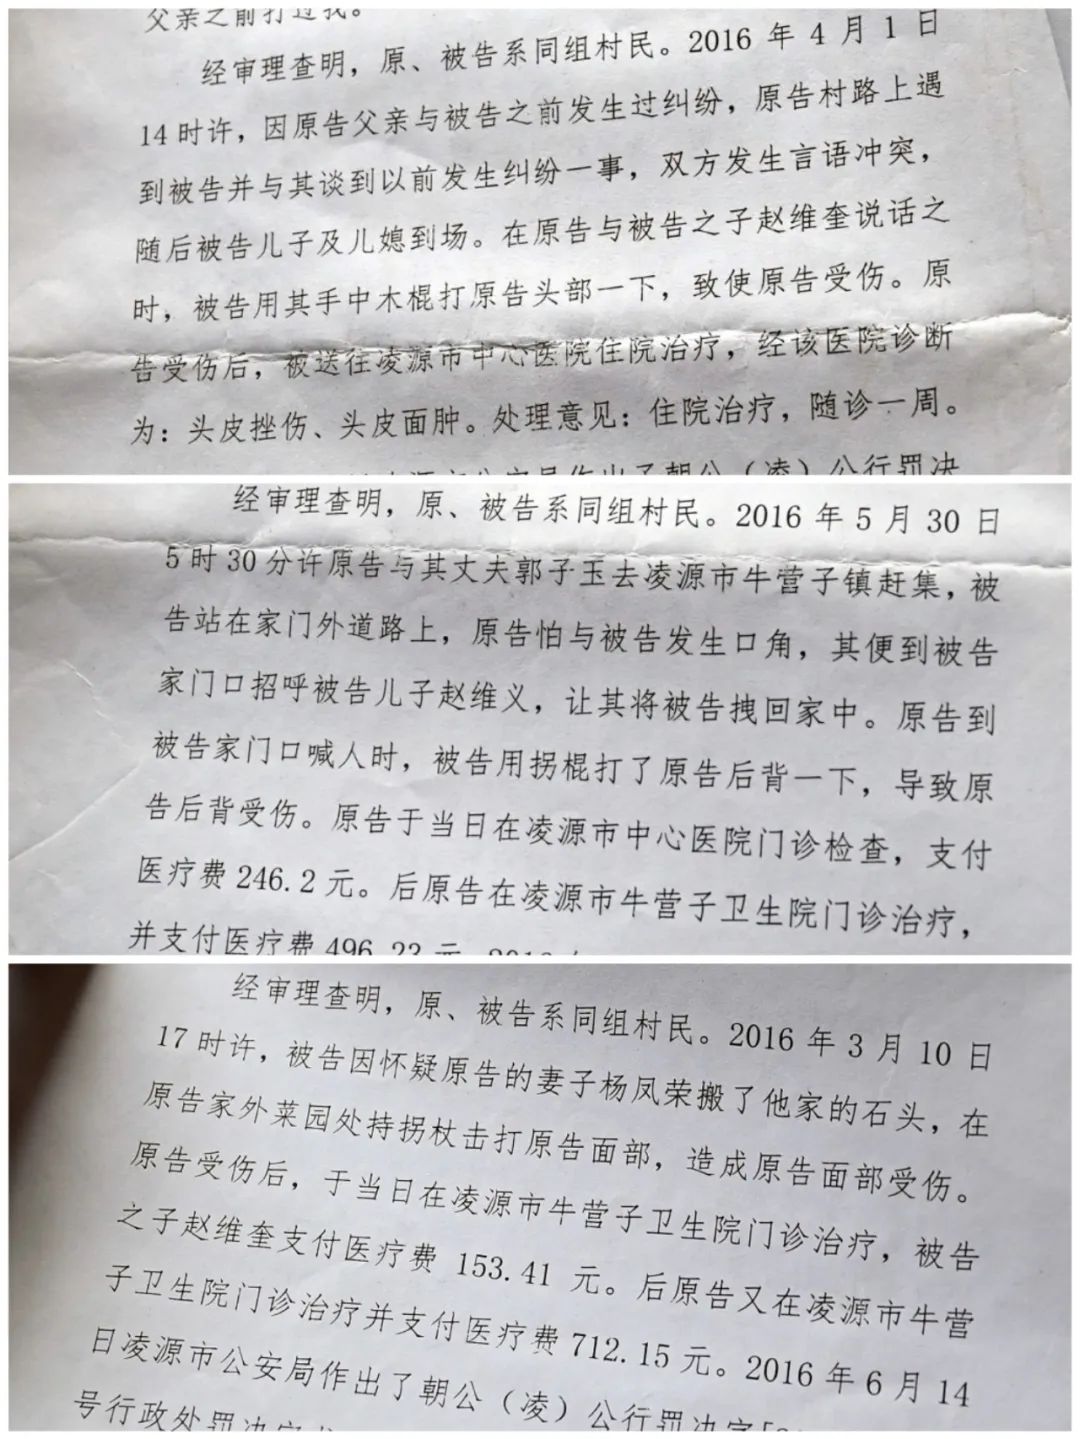 父亲之前打过我。
经审理查明，原、被告系同组村民。2016 年 4 月 1 日
14时许，因原告父亲与被告之前发生过纠纷，原告村路上遇
到被告并与其谈到以前发生纠纷一事，双方发生言语冲突，
随后被告儿子及儿媳到场。在原告与被告之子赵维奎说话之
时，被告用其手中木棍打原告头部一下，致使原告受伤。原
告受伤后，被送往凌源市中心医院住院治疗，经该医院诊断
为：头皮挫伤、头皮面肿。处理意见：住院治疗，随诊一周。
源市公安局作出了朝公（凌）公行罚决
经审理查明，原、被告系同组村民。2016 年 5 月 30 日
5 时 30 分许原告与其丈夫郭子玉去凌源市牛营子镇赶集，被
告站在家门外道路上，原告怕与被告发生口角，其便到被告
家门口招呼被告儿子赵维义，让其将被告拽回家中。原告到
被告家门口喊人时，被告用拐棍打了原告后背一下，导致原
告后背受伤。原告于当日在凌源市中心医院门诊检查，支付
医疗费 246.2 元。后原告在凌源市牛营子卫生院门诊治疗，
并支付医疗费 496.23 元
经审理查明，原、被告系同组村民。2016 年 3 月 10 日
17 时许，被告因怀疑原告的妻子杨凤荣搬了他家的石头，在
原告家外菜园处持拐杖击打原告面部，造成原告面部受伤。
原告受伤后，于当日在凌源市牛营子卫生院门诊治疗，被告
之子赵维奎支付医疗费 153.41 元。后原告又在凌源市牛营
子卫生院门诊治疗并支付医疗费 712.15 元。2016 年 6 月 14
日凌源市公安局作出了朝公（凌）公行罚决字
号行政处罚决定书